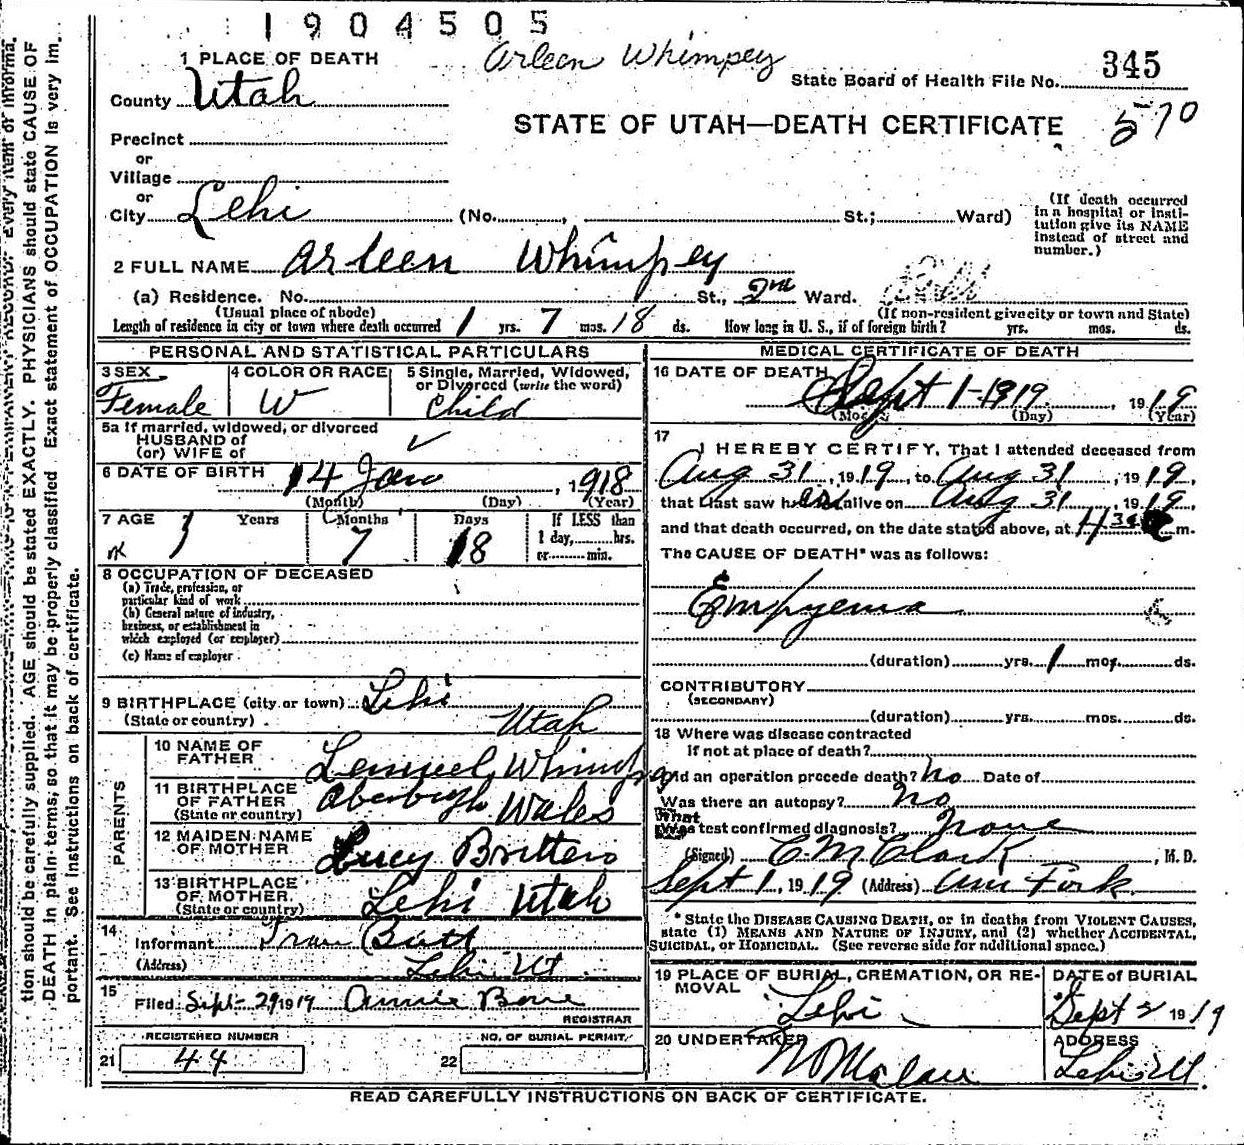 1904505
Arleen Whimpey
1 PLACE OF DEATH
State Board of Health File No. 345
County Utah
STATE OF UTAH—DEATH CERTIFICATE 570
Precinct
or
Village
or
City Lehi (No. , St.; Ward)
(If death occurred in a hospital or insti-
tution give its NAME
instead of street and
number.)
2 FULL NAME Arleen Whimpey
(a) Residence. No. St., 2nd Ward.
(Usual place of abode) (If non-resident give city or town and State)
Length of residence in city or town where death occurred 1 yrs. 7 mos. 18 ds. How long in U. S., if of foreign birth? yrs. mos. ds.
PERSONAL AND STATISTICAL PARTICULARS
3 SEX Female
4 COLOR OR RACE W
5 Single, Married, Widowed,
or Divorced (write the word)
Child
5a If married, widowed, or divorced
HUSBAND of
(or) WIFE of
6 DATE OF BIRTH 14 Jan, 1918
(Month) (Day) (Year)
7 AGE Years Months Days
1 7 18
If LESS than
1 day, hrs.
or min.
8 OCCUPATION OF DECEASED
(a) Trade, profession, or
particular kind of work
(b) General nature of industry,
business, or establishment in
which employed (or employer)
(c) Name of employer
9 BIRTHPLACE (city or town) Lehi
(State or country) Utah
PARENTS
10 NAME OF
FATHER Lemuel Whimpey
11 BIRTHPLACE
OF FATHER Wales
(State or country)
12 MAIDEN NAME
OF MOTHER Lucy Britten
13 BIRTHPLACE
OF MOTHER Lehi Utah
(State or country)
14
Informant
(Address) Lehi Ut
15
Filed Sept 29 1919 Annie Bone
REGISTRAR
REGISTERED NUMBER NO. OF BURIAL PERMIT
21 44 22
MEDICAL CERTIFICATE OF DEATH
16 DATE OF DEATH
Sept 1-1919, 1919
(Mo (Day) (Year)
17
I HEREBY CERTIFY, That I attended deceased from
Aug 31, 1919, to Aug 31, 1919,
that I last saw her alive on Aug 31, 1919,
and that death occurred, on the date stated above, at 4 30 m.
The CAUSE OF DEATH* was as follows:
Empyema
(duration) yrs. 1 mos. ds.
CONTRIBUTORY
(SECONDARY)
(duration) yrs. mos. ds.
18 Where was disease contracted
if not at place of death?
Did an operation precede death? No Date of
Was there an autopsy? No
What
test confirmed diagnosis? None
(Signed) C M Clark, M. D.
Sept 1, 1919 (Address) Am Fork
* State the DISEASE CAUSING DEATH, or in deaths from VIOLENT CAUSES,
state (1) MEANS AND NATURE OF INJURY, and (2) whether ACCIDENTAL,
SUICIDAL, or HOMICIDAL. (See reverse side for additional space.)
19 PLACE OF BURIAL, CREMATION, OR RE-
MOVAL
Lehi
DATE of BURIAL
Sept 2 1919
20 UNDERTAKER
ADDRESS
Lehi Ut.
READ CAREFULLY INSTRUCTIONS ON BACK OF CERTIFICATE.
tion should be carefully supplied. AGE should be stated EXACTLY. PHYSICIANS should state CAUSE OF
DEATH in plain terms, so that it may be properly classified. Exact statement of OCCUPATION is very im-
portant. See instructions on back of certificate.